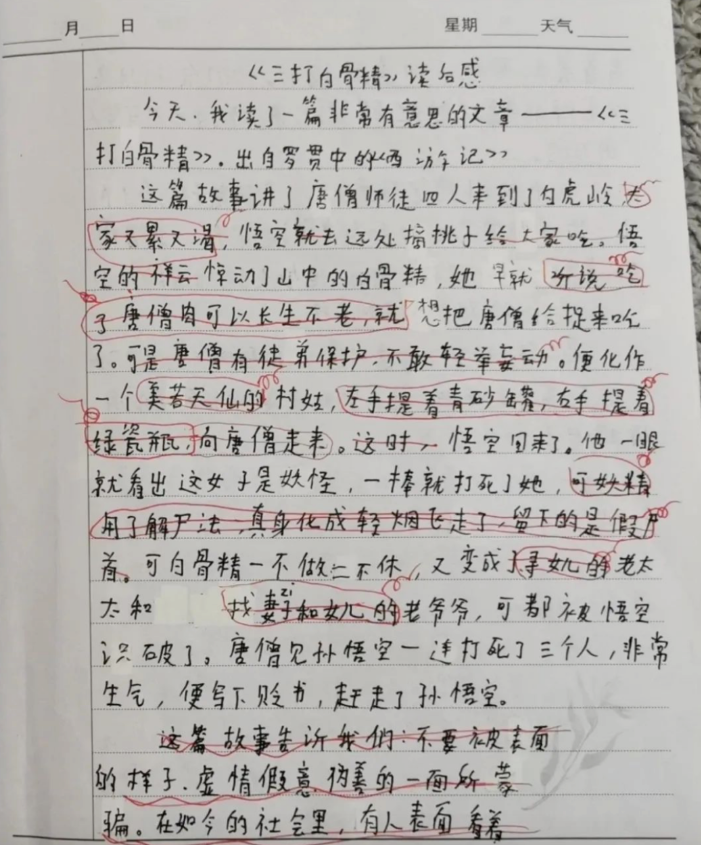 月 日 星期 天气
《三打白骨精》读后感
今天,我读了一篇非常有意思的文章——《三
打白骨精》,出自罗贯中的《西游记》
这篇故事讲了唐僧师徒四人来到了白虎岭,大
家又累又渴,悟空就去远处摘桃子给大家吃。悟
空的祥云惊动了山中的白骨精,她早就听说吃
了唐僧肉可以长生不老,就想把唐僧给捉来吃
了。可是唐僧有徒弟保护,不敢轻举妄动。便化作
一个美若天仙的村姑,左手提着青砂罐,右手提着
绿瓷瓶,向唐僧走来。这时,悟空回来了。他一眼
就看出这女子是妖怪,一棒就打死了她,可妖精
用了解尸法,真身化成轻烟飞走了,留下的是假尸
首。可白骨精一不做二不休,又变成了寻女儿的老太
太和 找妻子和女儿的老爷爷,可都被悟空
识破了。唐僧见孙悟空一连打死了三个人,非常
生气,便写下贬书,赶走了孙悟空。
这篇故事告诉我们:不要被表面
的样子、虚情假意、伪善的一面所蒙
骗。在如今的社会里,有人表面看着